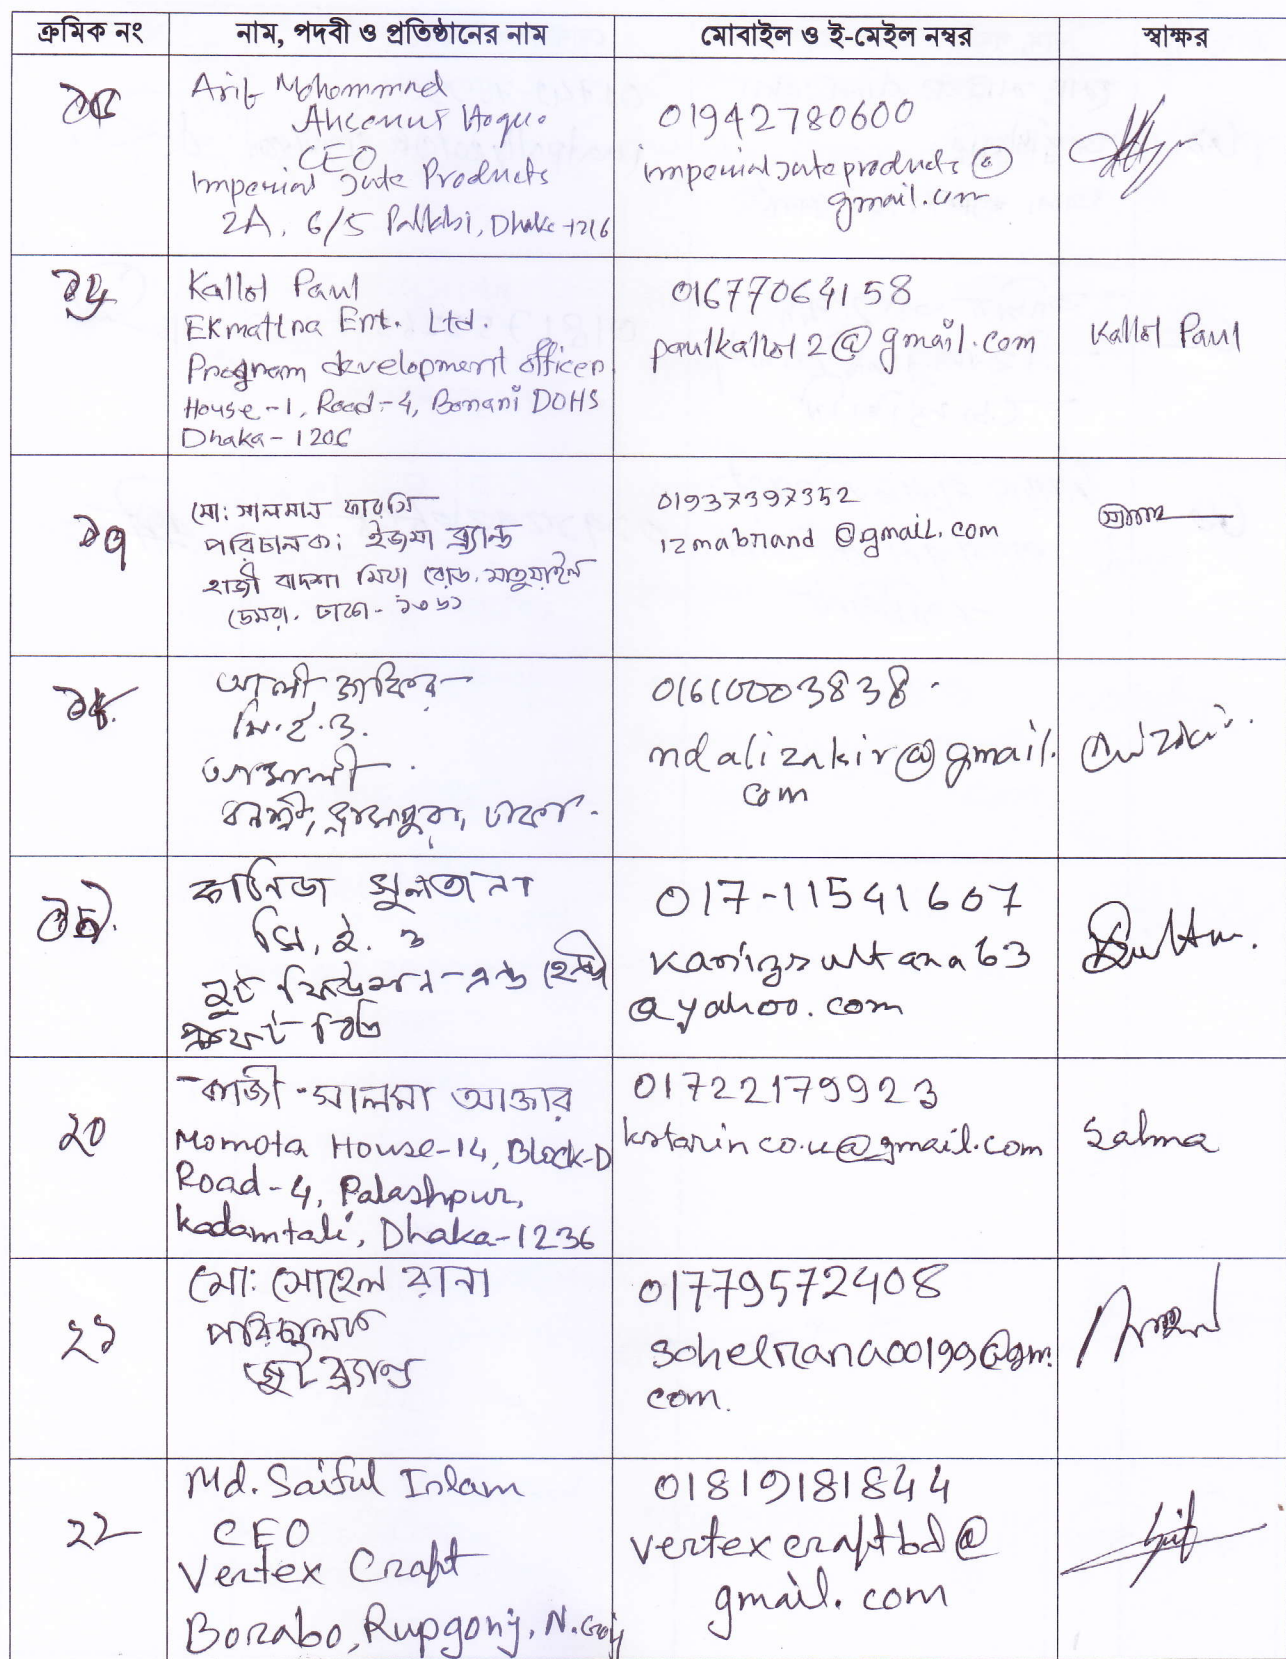 ক্রমিক নং
নাম, পদবী ও প্রতিষ্ঠানের নাম
মোবাইল ও ই-মেইল নম্বর
স্বাক্ষর
১৫
Arif Mohommad
Ahsanul Hoque
CEO
Imperial Jute Products
2A, 6/5 Pallabi, Dhaka-1216
01942780600
imperialjuteproducts@
gmail.com
১৬
Kallol Paul
EKmattra Ent. Ltd.
Program development officer
House-1, Road-4, Banani DOHS
Dhaka-1206
01677064158
paulkallol2@gmail.com
Kallol Paul
১৭
মো: সালমান ফারসি
পরিচালক: ইজমা ব্র্যান্ড
হাজী বাদশা মিয়া রোড, মাতুয়াইল
ডেমরা, ঢাকা-১৩৬১
01937397352
izmabrand@gmail.com
১৮
আলী জাকির
সি.ই.ও.
বনশ্রী, রামপুরা, ঢাকা.
01610003838
mdalizakir@gmail.
com
১৯
কানিজ সুলতানা
সি. ই. ও
017-11541607
kanizsultana63
@yahoo.com
২০
কাজী সালমা আক্তার
Momota House-14, Block-D
Road-4, Palashpur,
Kadamtali, Dhaka-1236
01722179923
Salma
২১
মো: সোহেল রানা
পরিচালক
জুট ব্র্যান্ড
01779572408
sohelrana00199@gm.
com.
২২
Md. Saiful Islam
CEO
Vertex Craft
Borabo, Rupgonj, N.Gonj
01819181844
vertexcraftbd@
gmail.com